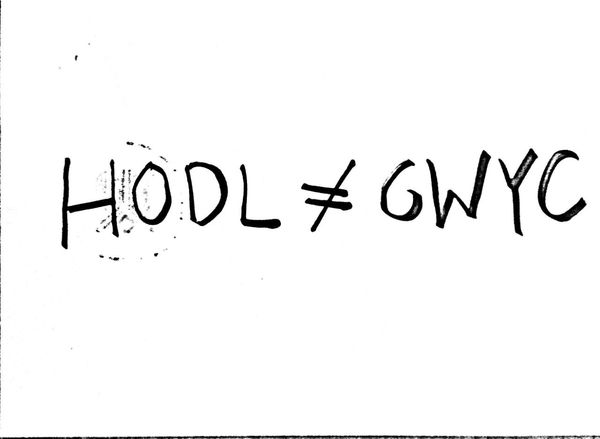 HODL ≠ GWYC